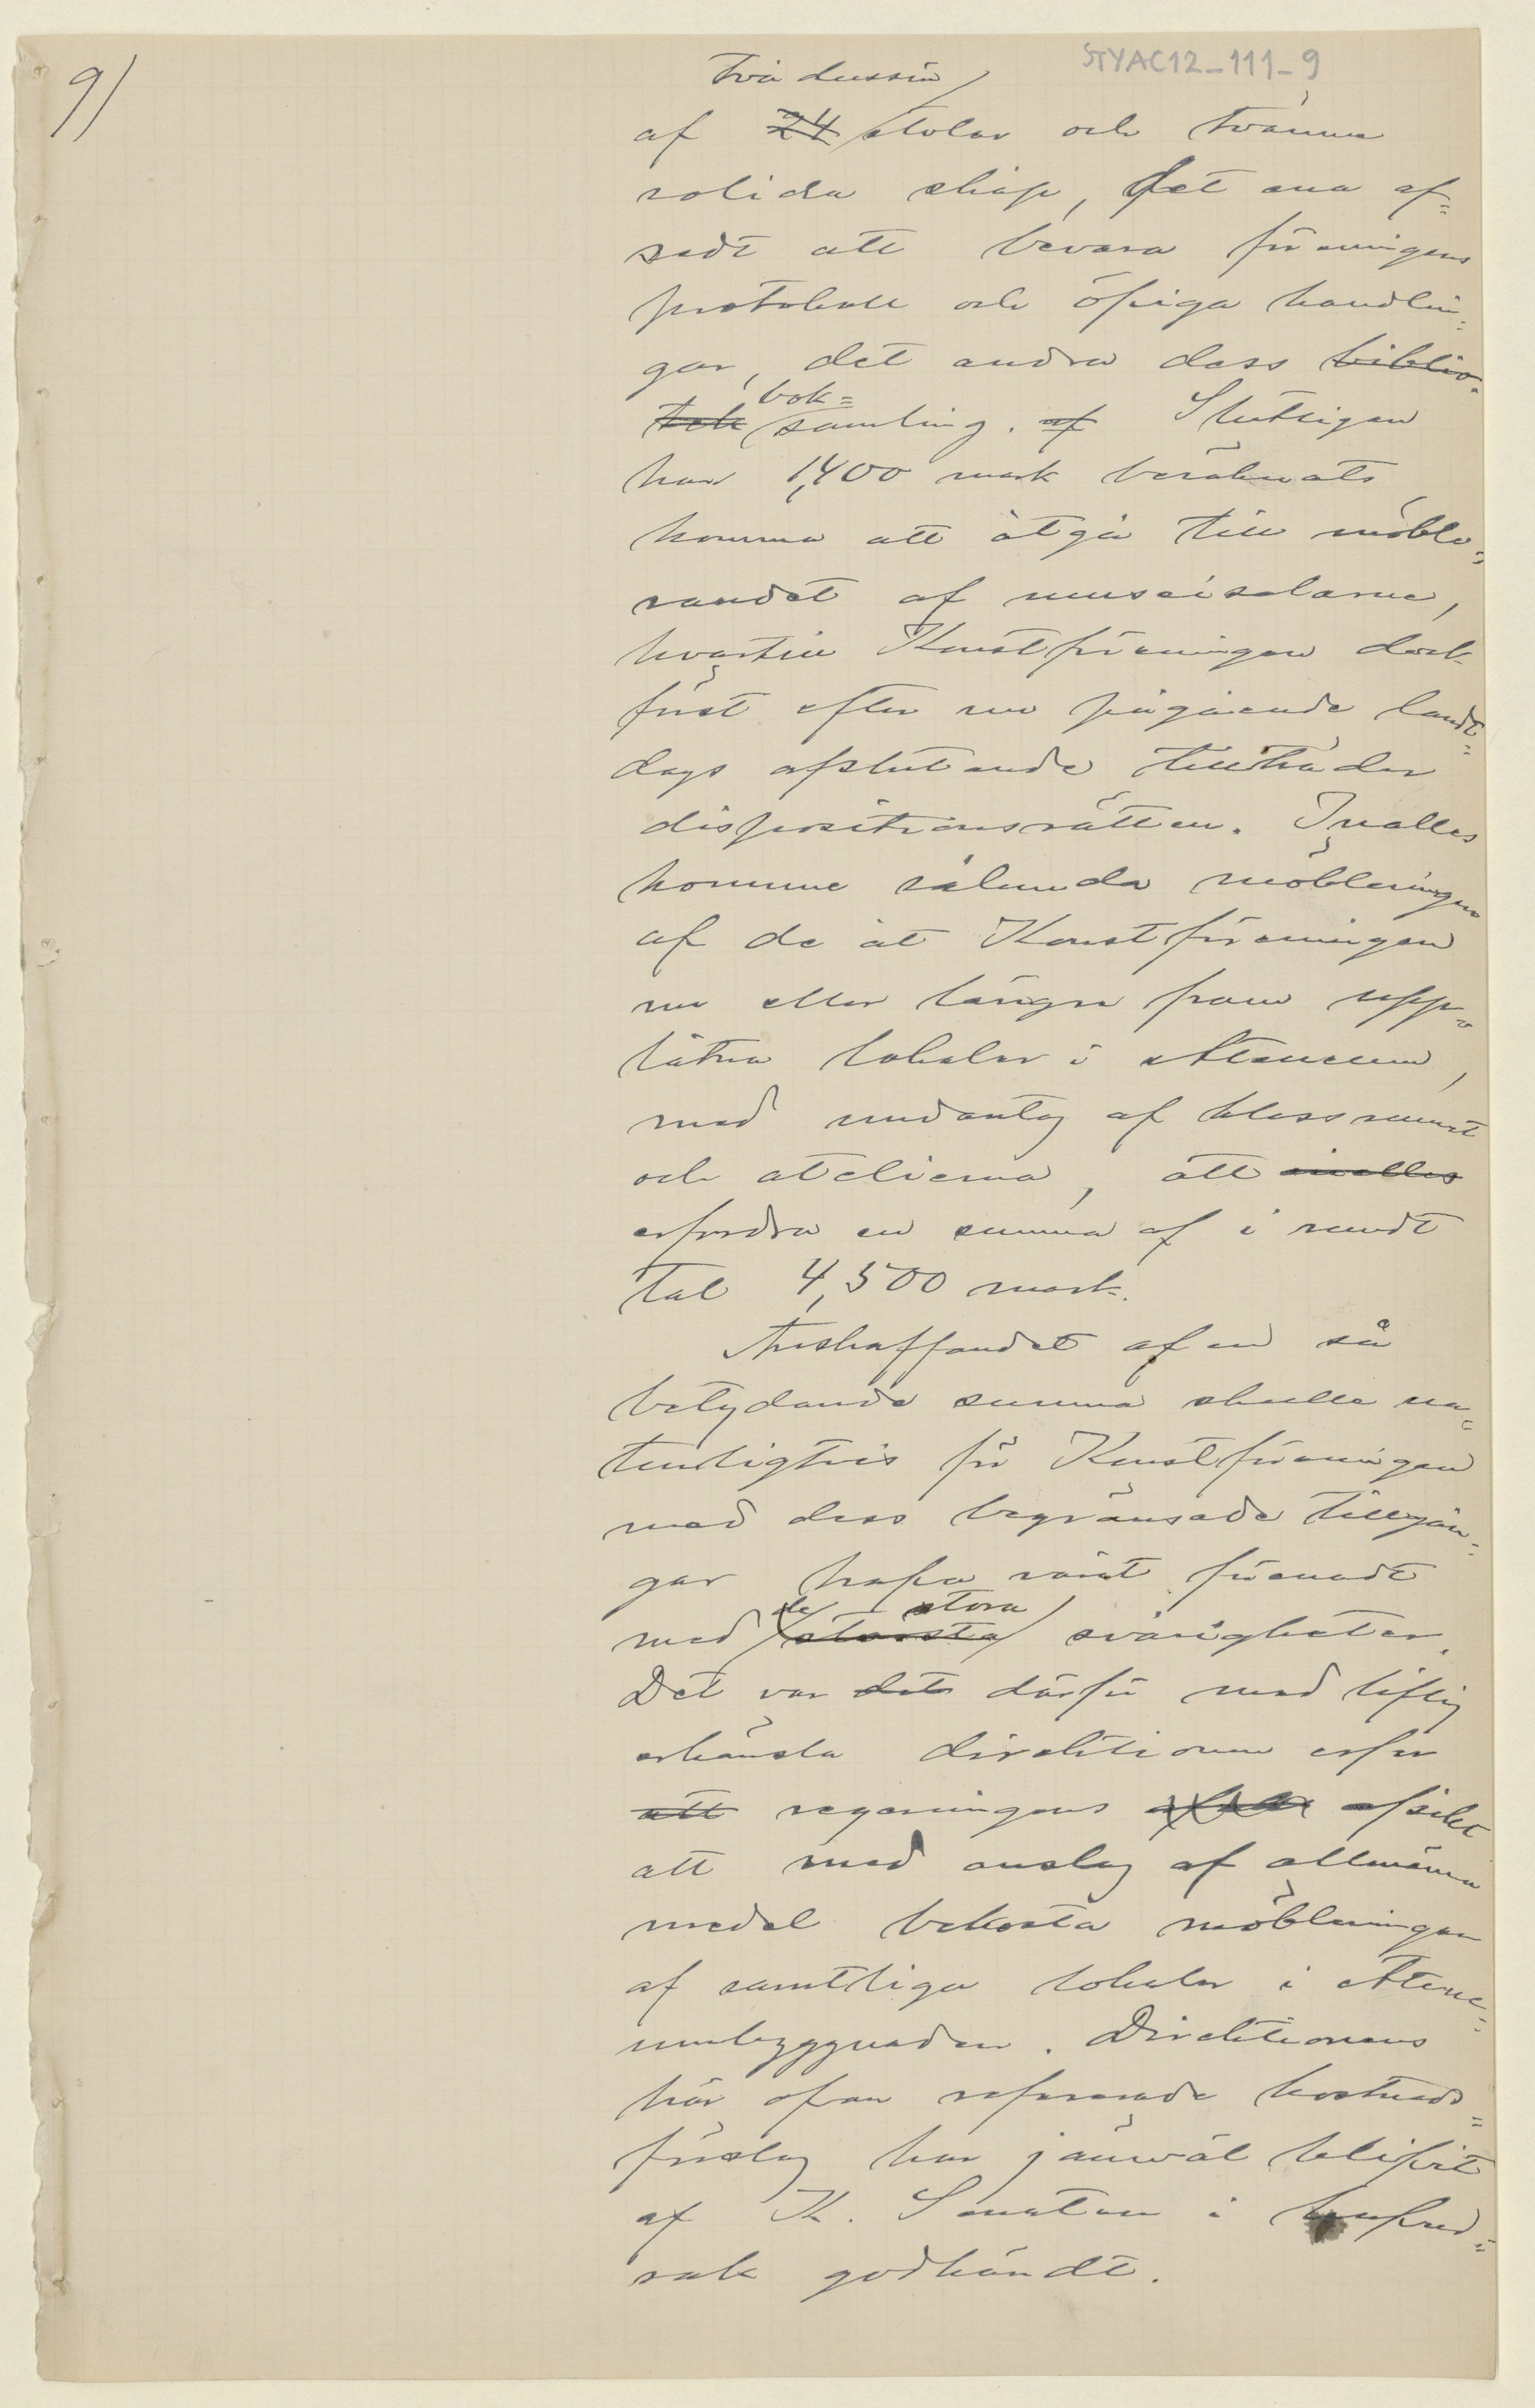 9/
STYAC12_111_9
två dussin
af 24 stolar och tvänne
solida skåp, det ena af=
sedt att bevara föreningens
protokoll och öfriga handlin=
gar, det andra dess biblio=
tek bok=
samling. af Slutligen
har 1,400 mark beräknats
komma att åtgå till möble=
randet af museisalarne,
hvartill Konstföreningen dock
först efter nu pågående landt=
dags afslutande tillträder
dispositionsrätten. Inalles
komme sålunda möbleringen
af de åt Konstföreningen
nu eller längre fram upp=
låtna lokaler i Ateneum,
med undantag af klassrummet
och atelierna, att inalles
erfordra en summa af i rundt
tal 4,500 mark.
Anskaffandet af en så
betydande summa skulle na=
turligtvis för Konstföreningen
med dess begränsade tillgån=
gar hafva varit förenadt
de stora
med största svårigheter.
Det var det därför med liflig
erkänsla direktionen erfor
att regeringens afsikt
att med anslag af allmänna
medel bekosta möbleringen
af samtliga lokaler i Atene=
umbyggnaden. Direktionens
här ofvan refererade kostnads=
förslag har jämväl blifvit
af K. Senaten i hufvud=
sak godkändt.